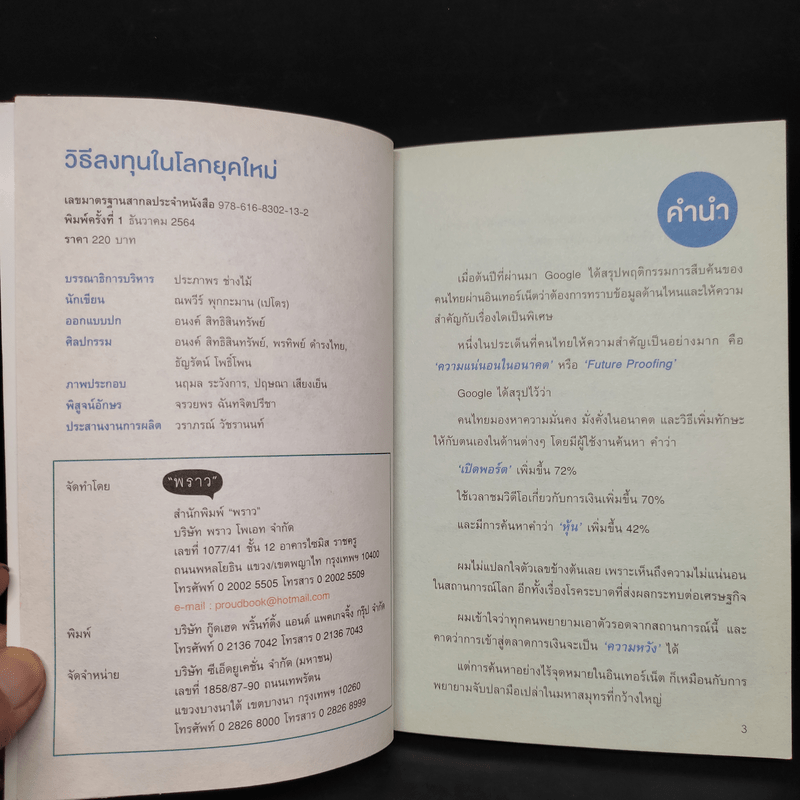 วิธีลงทุนในโลกยุคใหม่
เลขมาตรฐานสากลประจำหนังสือ 978-616-8302-13-2
พิมพ์ครั้งที่ 1 ธันวาคม 2564
ราคา 220 บาท
บรรณาธิการบริหาร ประภาพร ช่างไม้
นักเขียน ณพวีร์ พุกกะมาน (เปโดร)
ออกแบบปก อนงค์ สิทธิสินทรัพย์
ศิลปกรรม อนงค์ สิทธิสินทรัพย์, พรทิพย์ ดำรงไทย,
ธัญรัตน์ โพธิ์โพน
ภาพประกอบ นฤมล ระวังการ, ปฤษณา เสียงเย็น
พิสูจน์อักษร จรวยพร ฉันทจิตปรีชา
ประสานงานการผลิต วราภรณ์ วัชรานนท์
จัดทำโดย "พราว"
สำนักพิมพ์ "พราว"
บริษัท พราว โพเอท จำกัด
เลขที่ 1077/41 ชั้น 12 อาคารไซมิส ราชครู
ถนนพหลโยธิน แขวง/เขตพญาไท กรุงเทพฯ 10400
โทรศัพท์ 0 2002 5505 โทรสาร 0 2002 5509
e-mail : proudbook@hotmail.com
พิมพ์ บริษัท กู๊ดเฮด พริ้นท์ติ้ง แอนด์ แพคเกจจิ้ง กรุ๊ป จำกัด
โทรศัพท์ 0 2136 7042 โทรสาร 0 2136 7043
จัดจำหน่าย บริษัท ซีเอ็ดยูเคชั่น จำกัด (มหาชน)
เลขที่ 1858/87-90 ถนนเทพรัตน
แขวงบางนาใต้ เขตบางนา กรุงเทพฯ 10260
โทรศัพท์ 0 2826 8000 โทรสาร 0 2826 8999
คำนำ
เมื่อต้นปีที่ผ่านมา Google ได้สรุปพฤติกรรมการสืบค้นของ
คนไทยผ่านอินเทอร์เน็ตว่าต้องการทราบข้อมูลด้านไหนและให้ความ
สำคัญกับเรื่องใดเป็นพิเศษ
หนึ่งในประเด็นที่คนไทยให้ความสำคัญเป็นอย่างมาก คือ
'ความแน่นอนในอนาคต' หรือ 'Future Proofing'
Google ได้สรุปไว้ว่า
คนไทยมองหาความมั่นคง มั่งคั่งในอนาคต และวิธีเพิ่มทักษะ
ให้กับตนเองในด้านต่างๆ โดยมีผู้ใช้งานค้นหา คำว่า
'เปิดพอร์ต' เพิ่มขึ้น 72%
ใช้เวลาชมวิดีโอเกี่ยวกับการเงินเพิ่มขึ้น 70%
และมีการค้นหาคำว่า 'หุ้น' เพิ่มขึ้น 42%
ผมไม่แปลกใจตัวเลขข้างต้นเลย เพราะเห็นถึงความไม่แน่นอน
ในสถานการณ์โลก อีกทั้งเรื่องโรคระบาดที่ส่งผลกระทบต่อเศรษฐกิจ
ผมเข้าใจว่าทุกคนพยายามเอาตัวรอดจากสถานการณ์นี้ และ
คาดว่าการเข้าสู่ตลาดการเงินจะเป็น 'ความหวัง' ได้
แต่การค้นหาอย่างไร้จุดหมายในอินเทอร์เน็ต ก็เหมือนกับการ
พยายามจับปลามือเปล่าในมหาสมุทรที่กว้างใหญ่
3